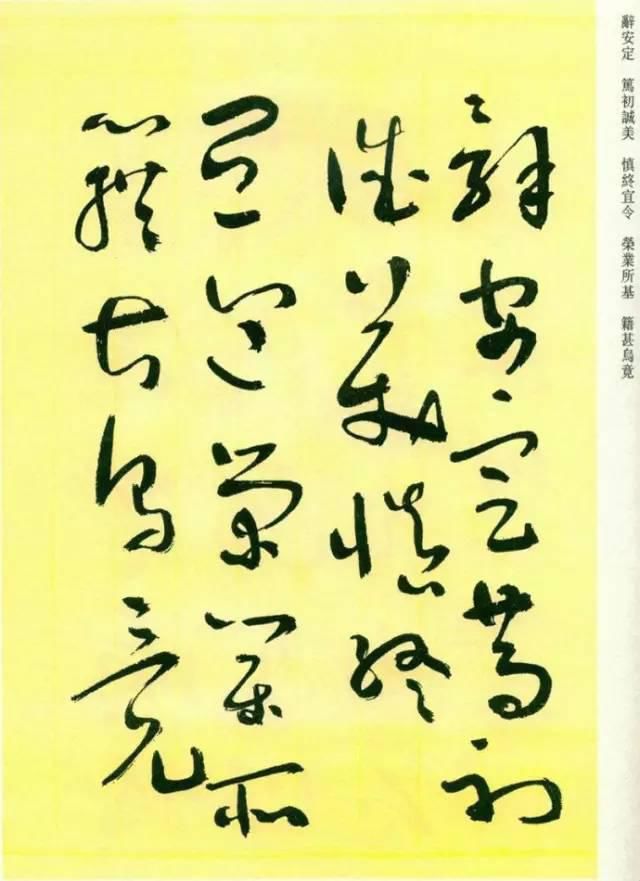 辭安定　篤初誠美　慎終宜令　榮業所基　籍甚烏竟
辭安定篤初
誠美慎終
宜令榮業所
籍甚烏竟